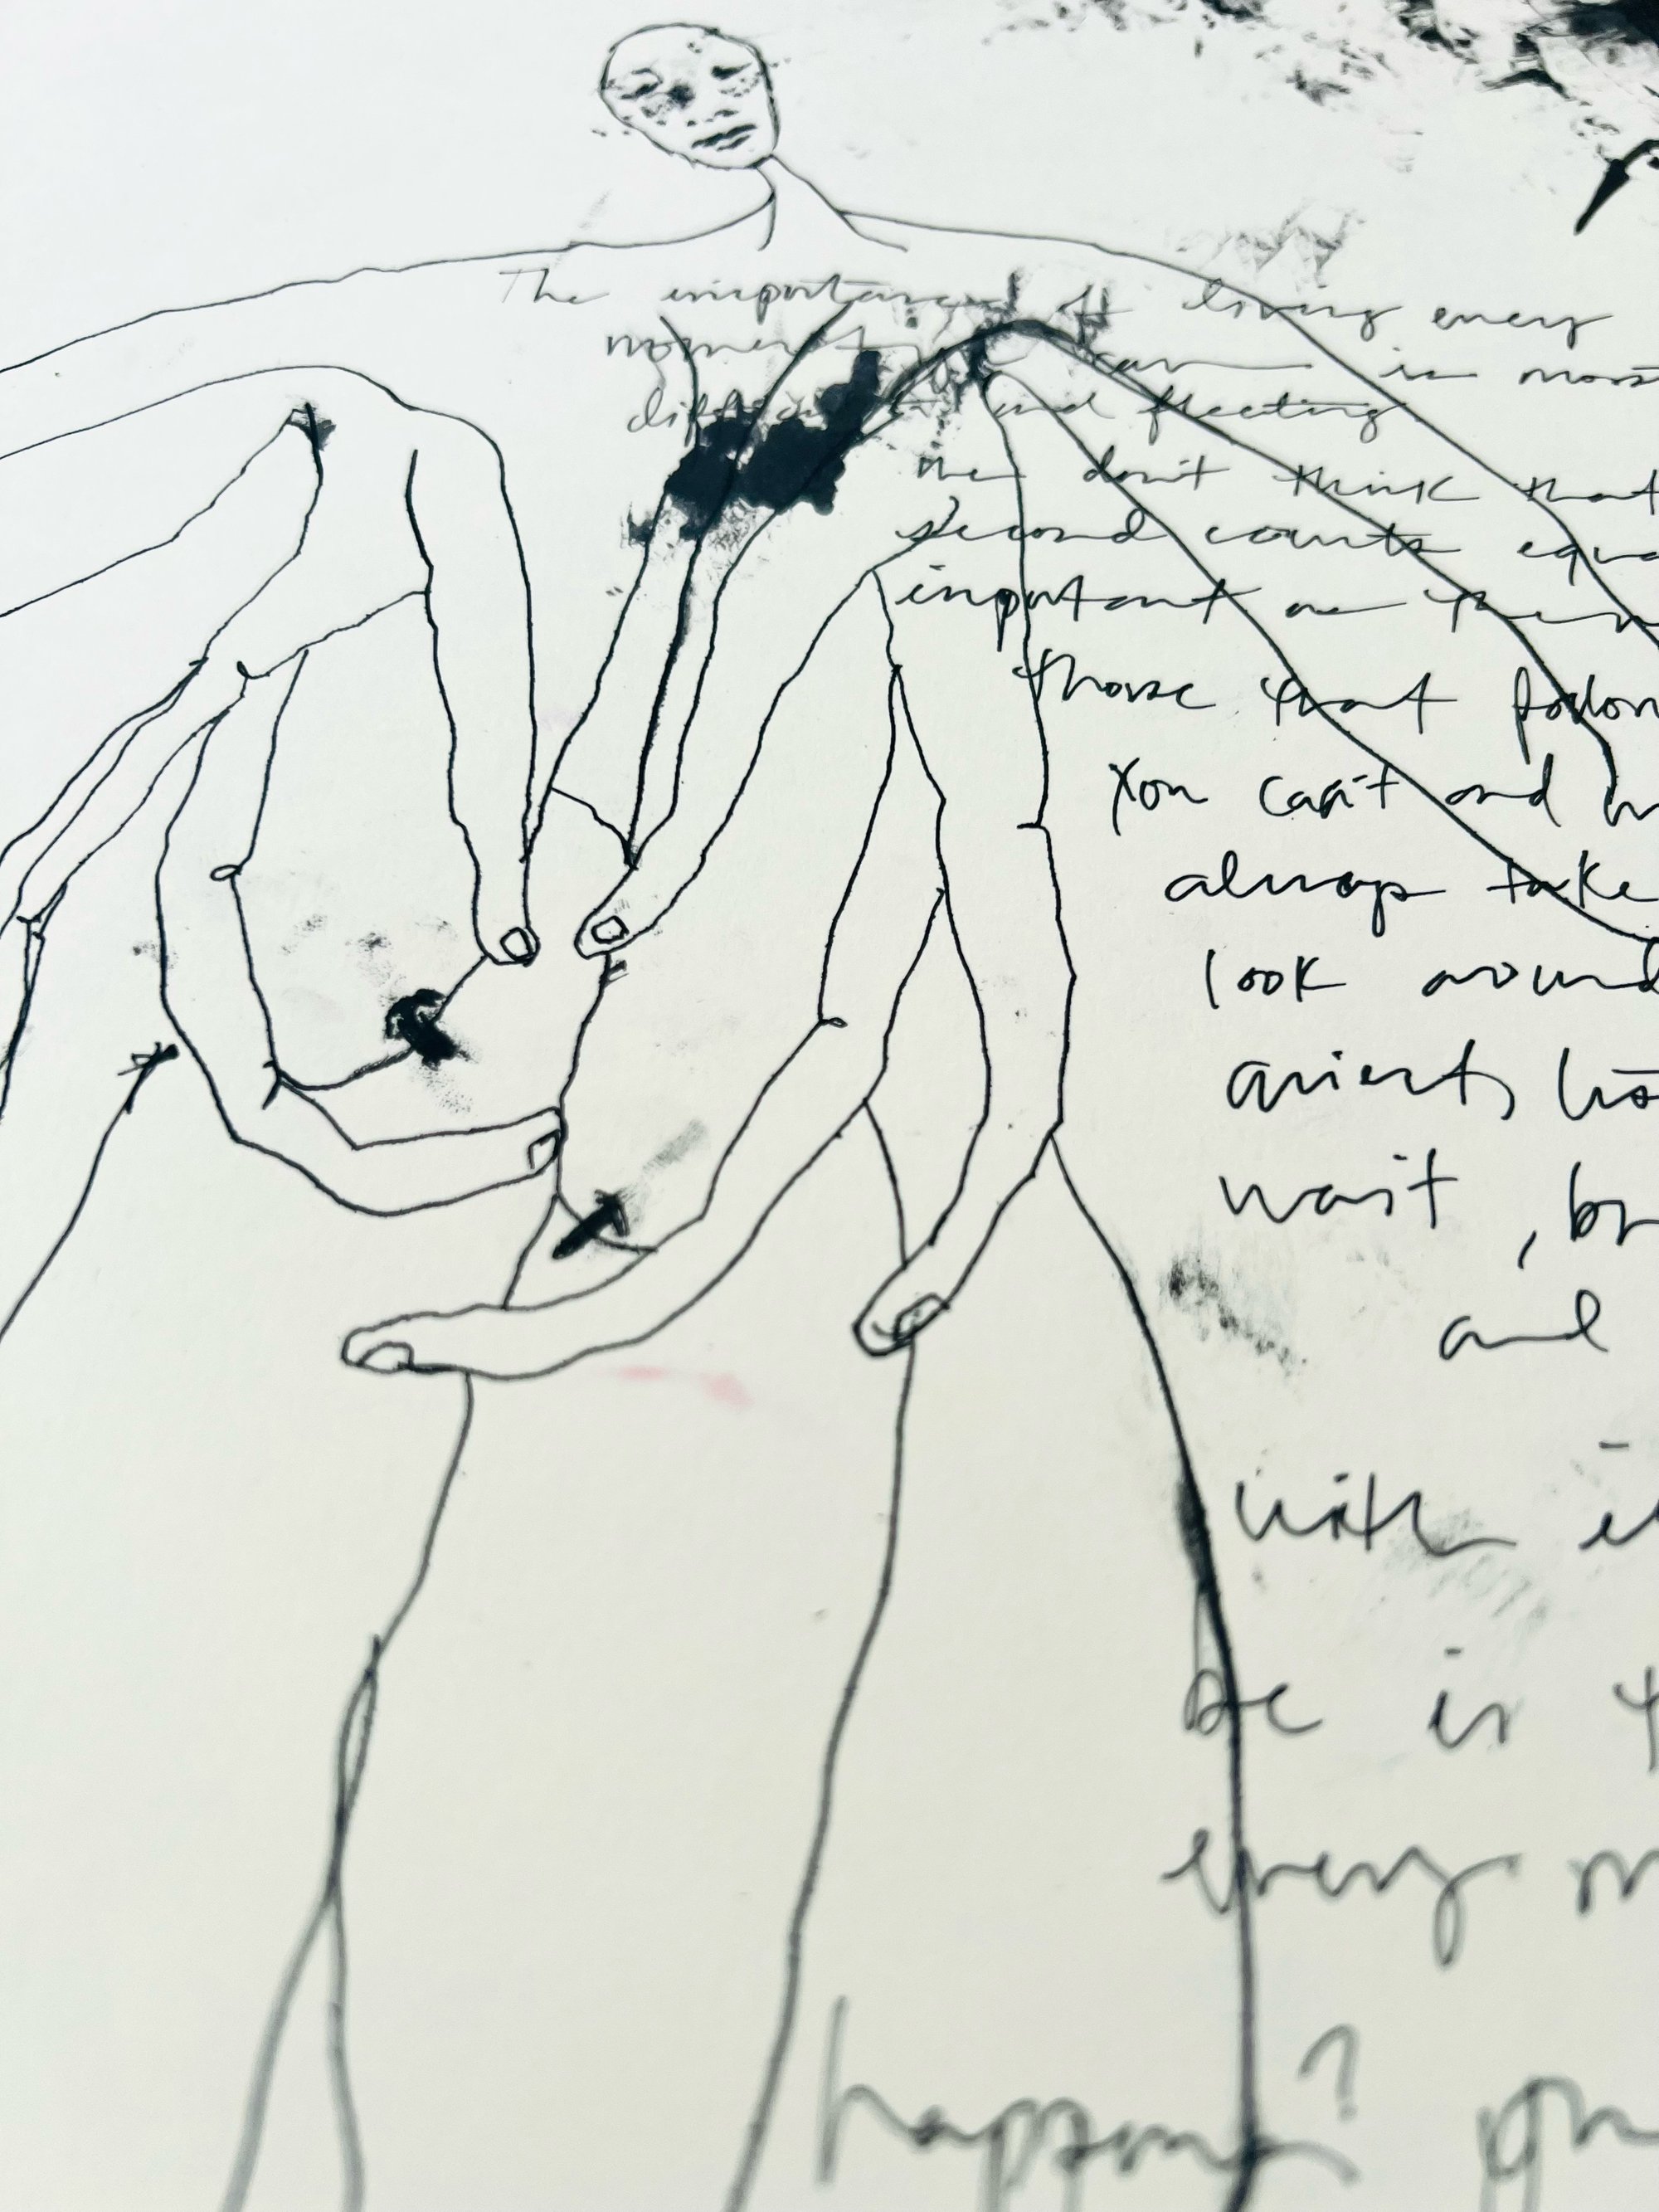 The importance of living every
moment is most
difficult and fleeting
we don't think that
second counts equa
important as
those that follow
You can't and
always take
look around
quiet, lis
wait , br
and
with
be is
every m
happens?